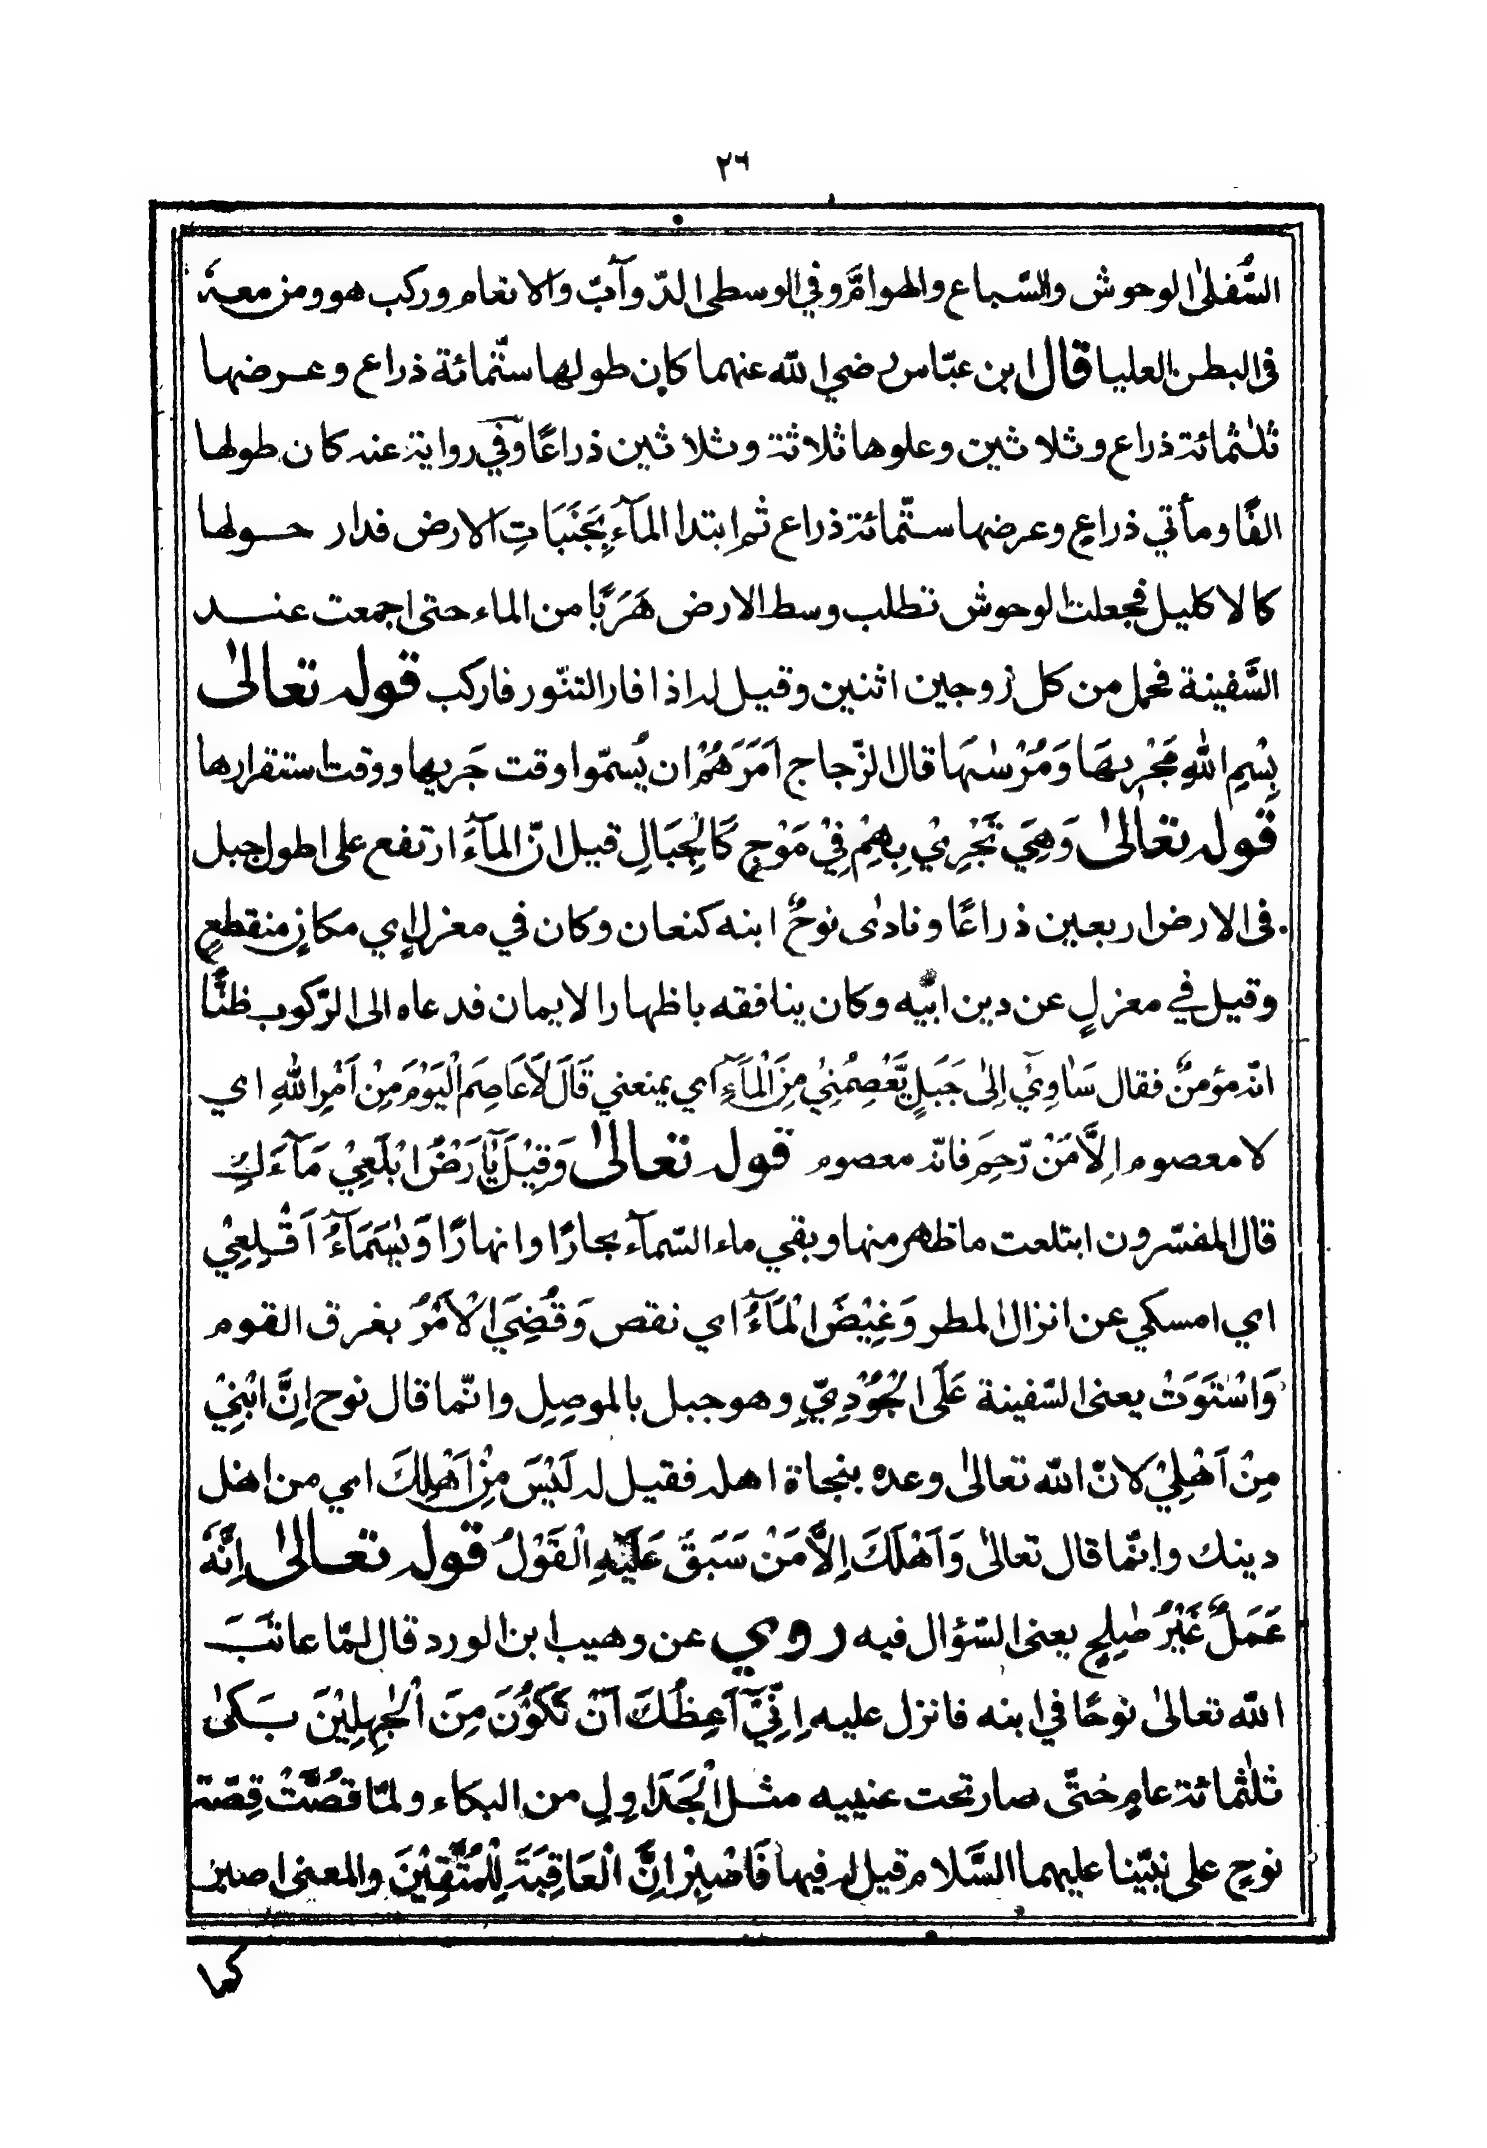 ٢٦
السُّفلىٰ الوحوش والسّباع والهوامَّ وفي الوسطى الدّوآبّ والانعام وركب هو ومن معهٗ
فى البطن العليا قال ابن عبّاس رضي اللّٰه عنهما كان طولها ستّمائة ذراع وعرضها
ثلٰثمائة ذراع وثلاثين وعلوها ثلاثة وثلاثين ذراعًا وفي رواية عنه كان طولها
الفًا ومأتي ذراعٍ وعرضها ستّمائة ذراع ثم ابتدا المآءَ بِجَنَبَاتِ الارض فدار حولها
كالاكليل فجعلت الوحوش تطلب وسط الارض هَرَبًا من الماء حتى اجمعت عند
السَّفينة فحمل من كل زوجين اثنين وقيل له اذا فار التنّور فاركب قوله تعالىٰ
بِسْمِ اللّٰهِ مَجْرٖىهَا وَمُرْسٰىهَا قال الزّجاج اَمَرَهُمْ ان يُسمّوا وقت جَريها ووقت استقرارها
قوله تعالىٰ وَهِيَ تَجْرِيْ بِهِمْ فِيْ مَوْجٍ كَالْجِبَالِ قيل انّ المآءَ ارتفع على اطول جبل
فى الارض اربعين ذراعًا ونادٰى نوحٌ ابنه كنعان وكان في معزلٍ اي مكانٍ منقطعٍ
وقيل في معزلٍ عن دين ابيه وكان ينافقه باظهار الايمان فدعاه الى الرّكوب ظنًّا
انّه مؤمنٌ فقال سَاٰوِيْ اِلىٰ جَبَلٍ يَّعْصِمُنِيْ مِنَ الْمَآءِ اي يمنعني قَالَ لَا عَاصِمَ الْيَوْمَ مِنْ اَمْرِ اللّٰهِ اي
لا معصوم اِلَّا مَنْ رَّحِمَ فانّه معصوم قوله تعالىٰ وَقِيْلَ يٰٓاَرْضُ ابْلَعِيْ مَآءَكِ
قال المفسّرون ابتلعت ما ظهر منها وبقي ماء السّمآء بحارًا وانهارًا وَيٰسَمَآءُ اَقْلِعِيْ
اي امسكي عن انزال المطر وَغِيْضَ الْمَآءُ اي نقص وَقُضِيَ الْاَمْرُ بغرق القوم
وَاسْتَوَتْ يعنى السّفينة عَلَى الْجُوْدِيِّ وهو جبل بالموصِلِ وانّما قال نوح اِنَّ ابْنِيْ
مِنْ اَهْلِيْ لانّ اللّٰه تعالىٰ وعده بنجاة اهله فقيل له لَيْسَ مِنْ اَهْلِكَ اي من اهل
دينك وانّما قال تعالىٰ وَاَهْلَكَ اِلَّا مَنْ سَبَقَ عَلَيْهِ الْقَوْلُ قوله تعالىٰ اِنَّهٗ
عَمَلٌ غَيْرُ صٰلِحٍ يعنى السّؤال فيه روي عن وهيب ابن الورد قال لمّا عاتَبَ
اللّٰه تعالىٰ نوحًا في ابنه فانزل عليه اِنِّيْٓ اَعِظُكَ اَنْ تَكُوْنَ مِنَ الْجٰهِلِيْنَ بَكىٰ
ثلٰثمائة عامٍ حتّى صار تحت عينيه مثل الْجَدَاوِلِ من البكاء ولمّا قُصَّتْ قِصّة
نوحٍ على نبيّنا عليهما السَّلام قيل له فيها فَاصْبِرْ اِنَّ الْعَاقِبَةَ لِلْمُتَّقِيْنَ والمعنى اصبر
كما